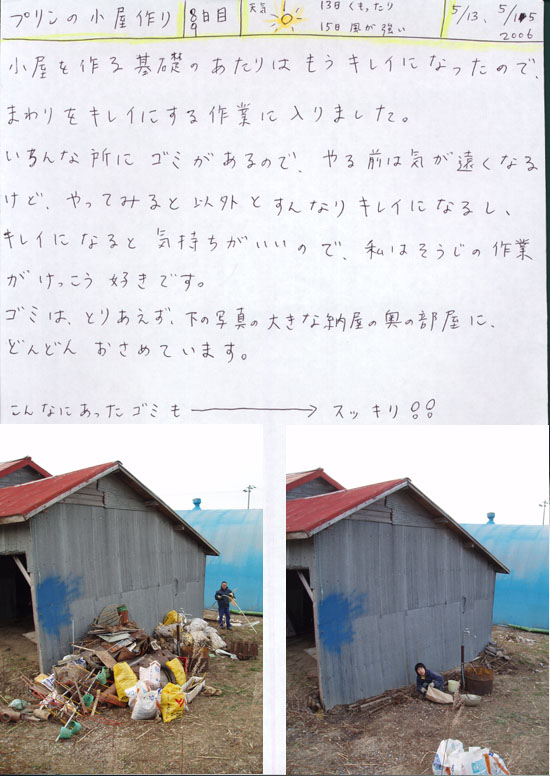 プリンの小屋作り 8 9 日目 天気 13日くもったり 15日風が強い 5/13、5/15 2006
小屋を作る基礎のあたりはもうキレイになったので、
まわりをキレイにする作業に入りました。
いろんな所にゴミがあるので、やる前は気が遠くなる
けど、やってみると以外とすんなりキレイになるし、
キレイになると気持ちがいいので、私はそうじの作業
がけっこう好きです。
ゴミは、とりあえず、下の写真の大きな納屋の奥の部屋に、
どんどんおさめています。
こんなにあったゴミも → スッキリ!!